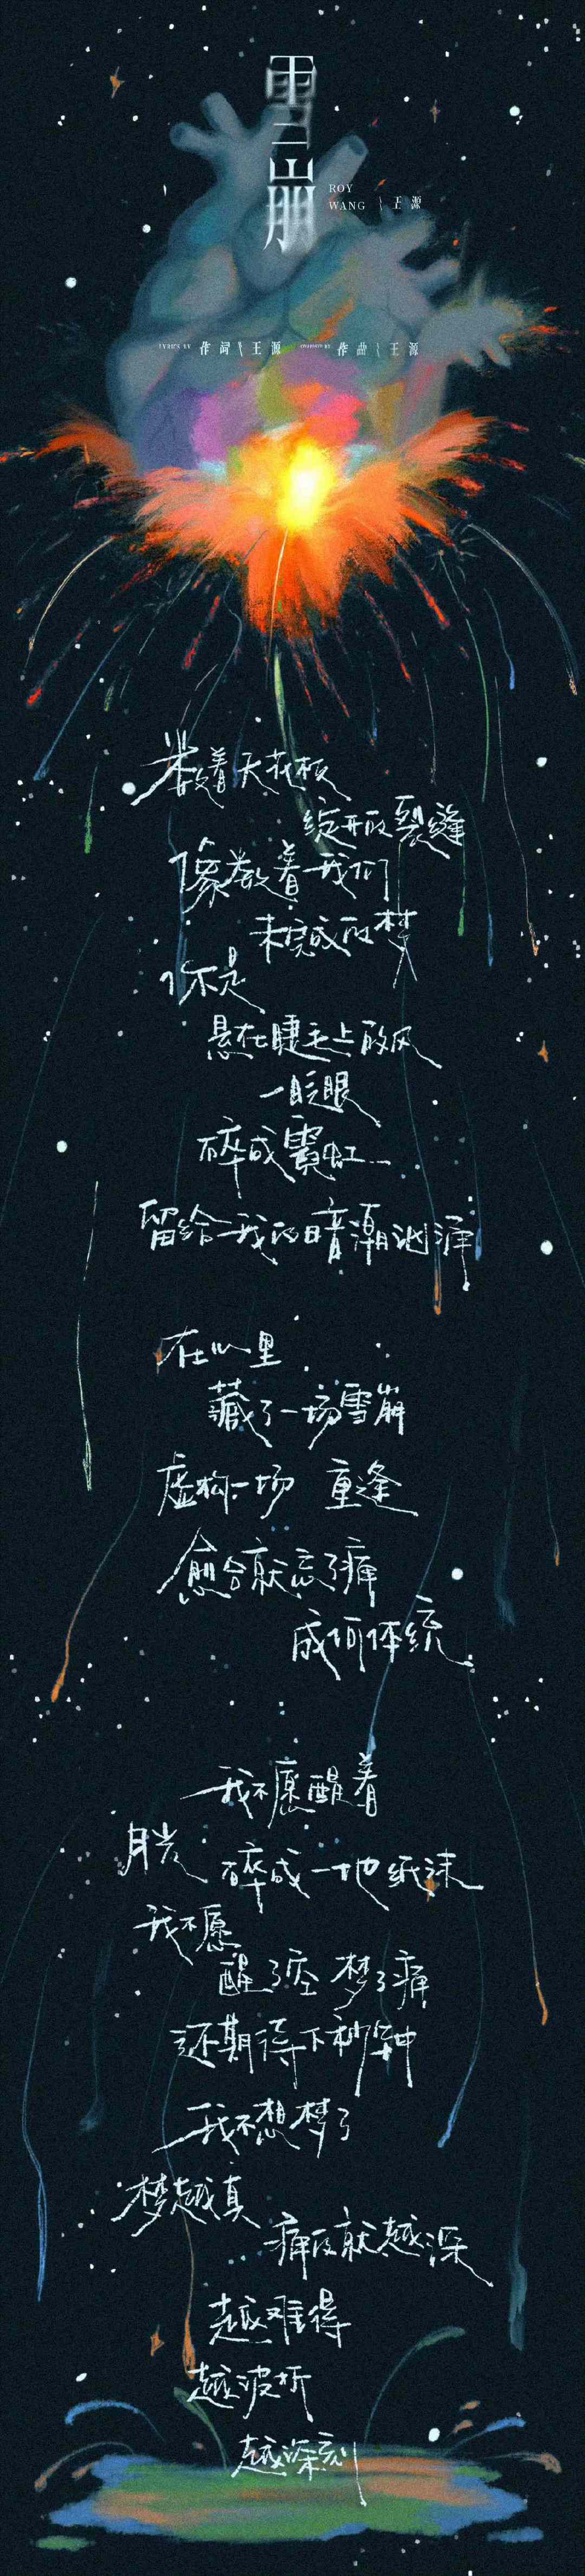 雪崩
ROY
WANG \ 王源
LYRICS BY 作词 \ 王源 COMPOSED BY 作曲 \ 王源
数着天花板
绽开的裂缝
像数着我们
未完成的梦
你是
悬在睫毛上的风
一眨眼
碎成霓虹
留给我的暗潮汹涌
在心里
藏了一场雪崩
虚构一场 重逢
愈合就忘了痛
成何体统
我不愿醒着
月光 碎成一地纸沫
我不愿
醒了空 梦了痛
还期待下秒钟
我不想梦了
梦越真
痛的就越深
越难得
越波折
越深刻